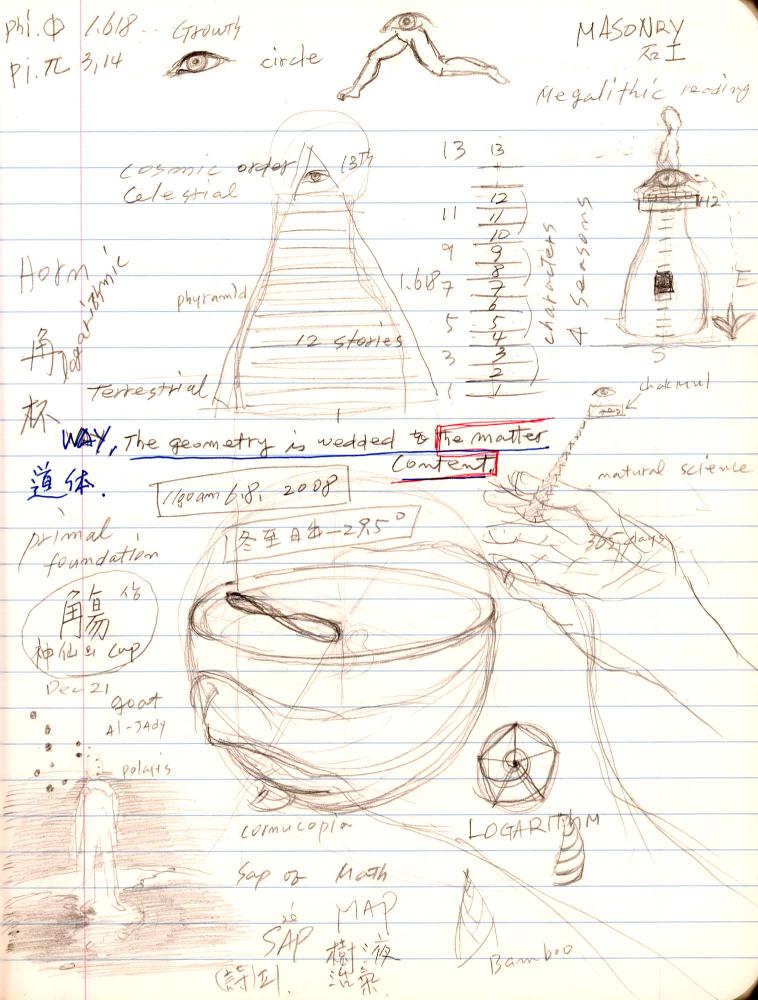 phi. Φ 1.618.. Growth
pi. π 3,14
circle
MASONRY
石工
Megalithic reading
cosmic order
Celestial
13th
13 13
12
11 11
10
9 9
8
1.618
7 7
6
5 5
4
3 3
2
1 1
characters
4 seasons
12
E
S
Horn
Logarithmic
角
杯
phyramid
12 stories
Terrestrial
WAY, The geometry is wedded to the matter
content.
道 体.
chakmul
natural science
365 days
11:90am 6.8, 2008
冬至 日出 -29.5°
primal
foundation
觴
神仙의 cup
Dec 21
goat
Al-JAdy
polaris
cornucopia
LOGARITHM
Sap of Math
MAP
SAP
樹液
(詩)
Bamboo